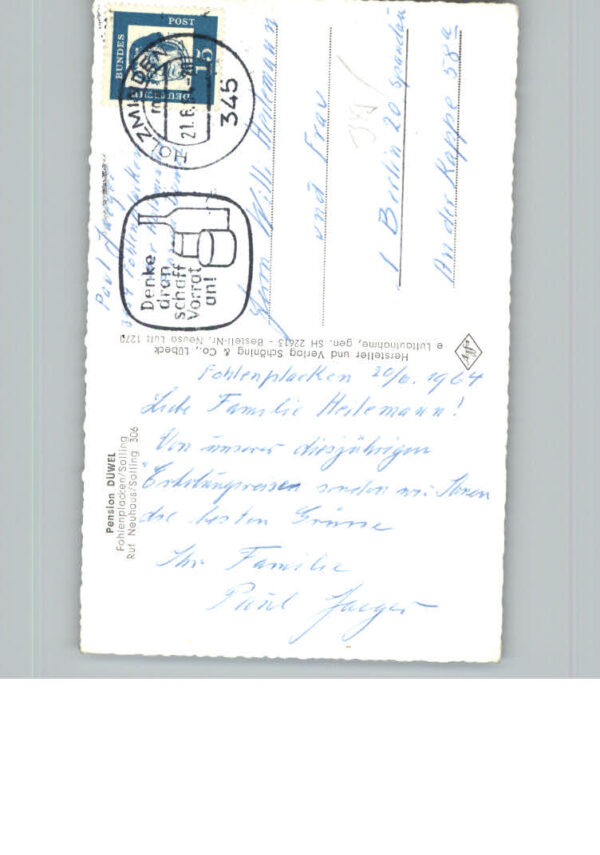 Pension DÜWEL
Fohlenplacken/Solling
Ruf Neuhaus/Solling 306
Fohlenplacken 20/6. 1964
Liebe Familie Heilemann!
Von unserer diesjährigen
Erholungsreise senden wir Ihnen
die besten Grüsse
Ihre Familie
Paul Jaeger
Hersteller und Verlag Schöning & Co., Lübeck
© Luftaufnahme, gen. SH 22613 - Bestell-Nr. Neusa Luft 1270
DEUTSCHE
BUNDES
POST
15
HOLZMINDEN
21.6.
345
Denke
dran
schaff
Vorrat
an!
Paul Jaeger
Fohlenplacken
Herrn Willi Heilemann
und Frau
1 Berlin 20 Spandau
An der Kappe 58a